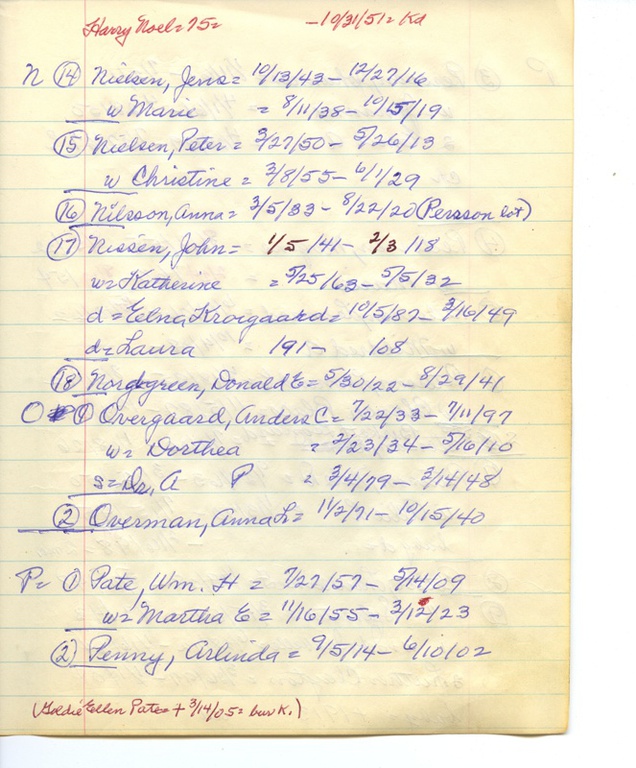 Harry Noel = 75 = - 10/31/51 = Kd
N (14) Nielsen, Jens = 10/13/43 - 12/27/16
w Marie = 8/11/38 - 10/15/19
(15) Nielsen, Peter = 3/27/50 - 5/26/13
w Christine = 3/8/55 - 6/1/29
(16) Nilsson, Anna = 3/5/33 - 8/22/20 (Persson lot)
(17) Nissen, John = 1/5/41 - 2/3/18
w = Katherine = 5/25/63 - 5/5/32
d = Elna Krorgaard = 10/5/87 - 3/16/49
d = Laura 191 - 108
(18) Nordgreen, Donald E = 5/30/22 - 8/29/41
O (1) Overgaard, Anders C = 7/22/33 - 7/11/97
w = Dorthea = 2/23/34 - 5/16/10
s = Dr, A P = 3/4/79 - 3/14/48
(2) Overman, Anna L = 11/2/71 - 10/15/40
P = (1) Pate, Wm. H = 7/27/57 - 5/14/09
w = Martha E = 11/16/55 - 3/12/23
(2) Penny, Arlinda = 9/5/14 - 6/10/02
(Goldie Ellen Pate = + 3/14/05 = bur K.)